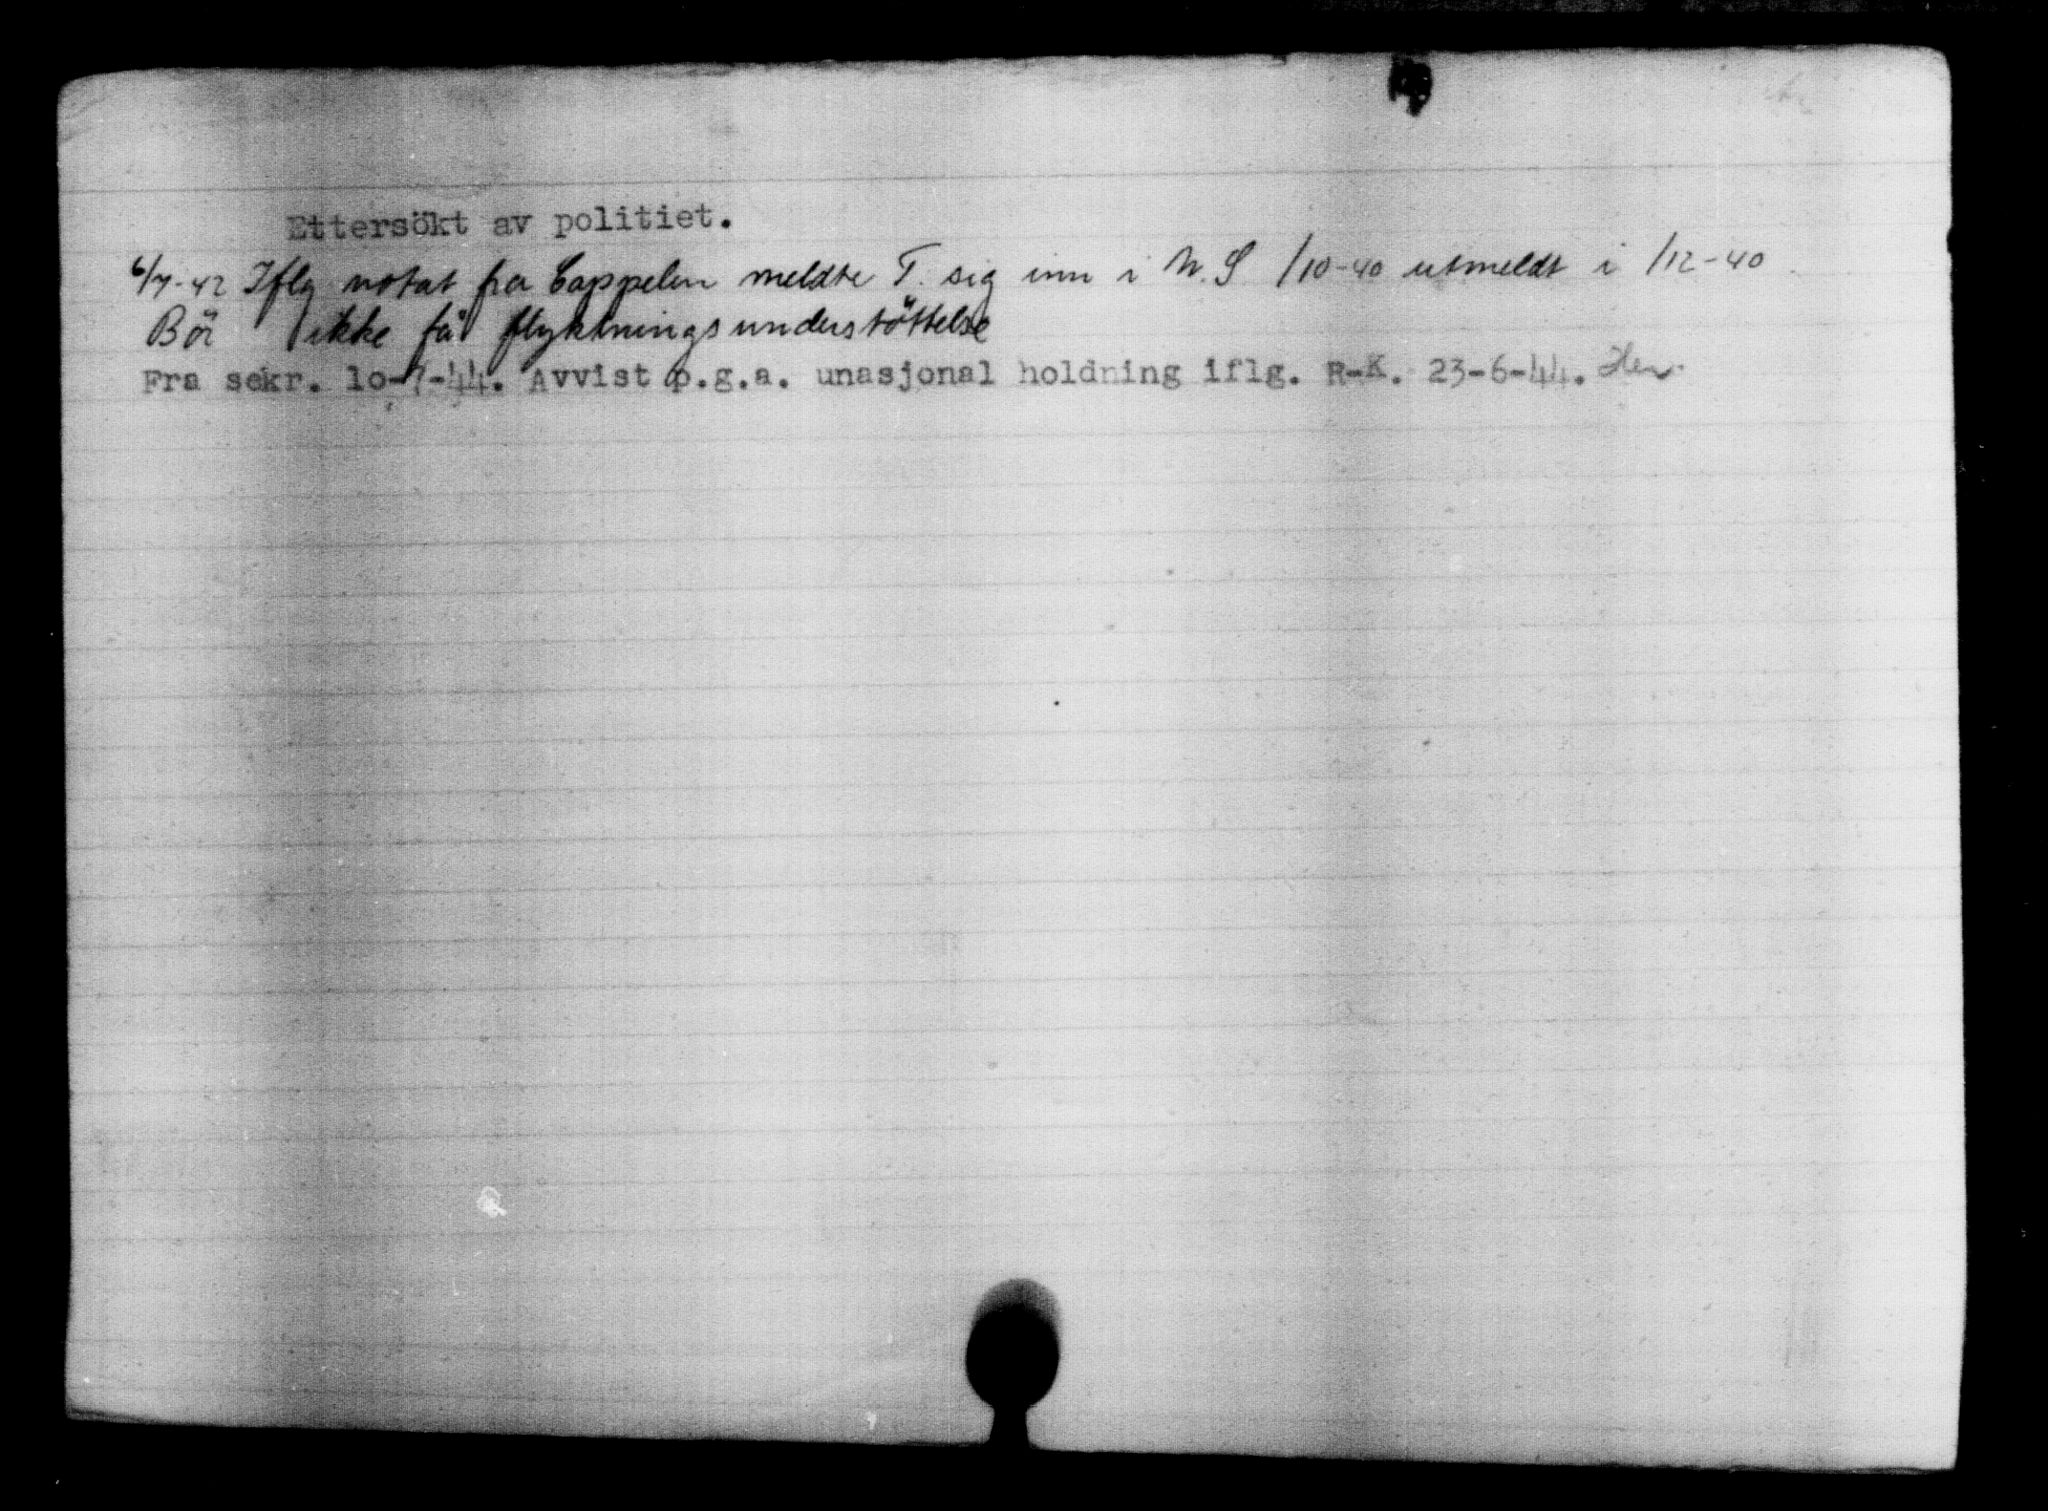 Ettersökt av politiet.
6/7-42 Iflg notat fra Cappelen meldte T. sig inn i N.S /10-40 utmeldt i /12-40
Bör ikke få flyktningsunderstöttelse
Fra sekr. lo-7-44. Avvist p.g.a. unasjonal holdning iflg. R-K. 23-6-44.